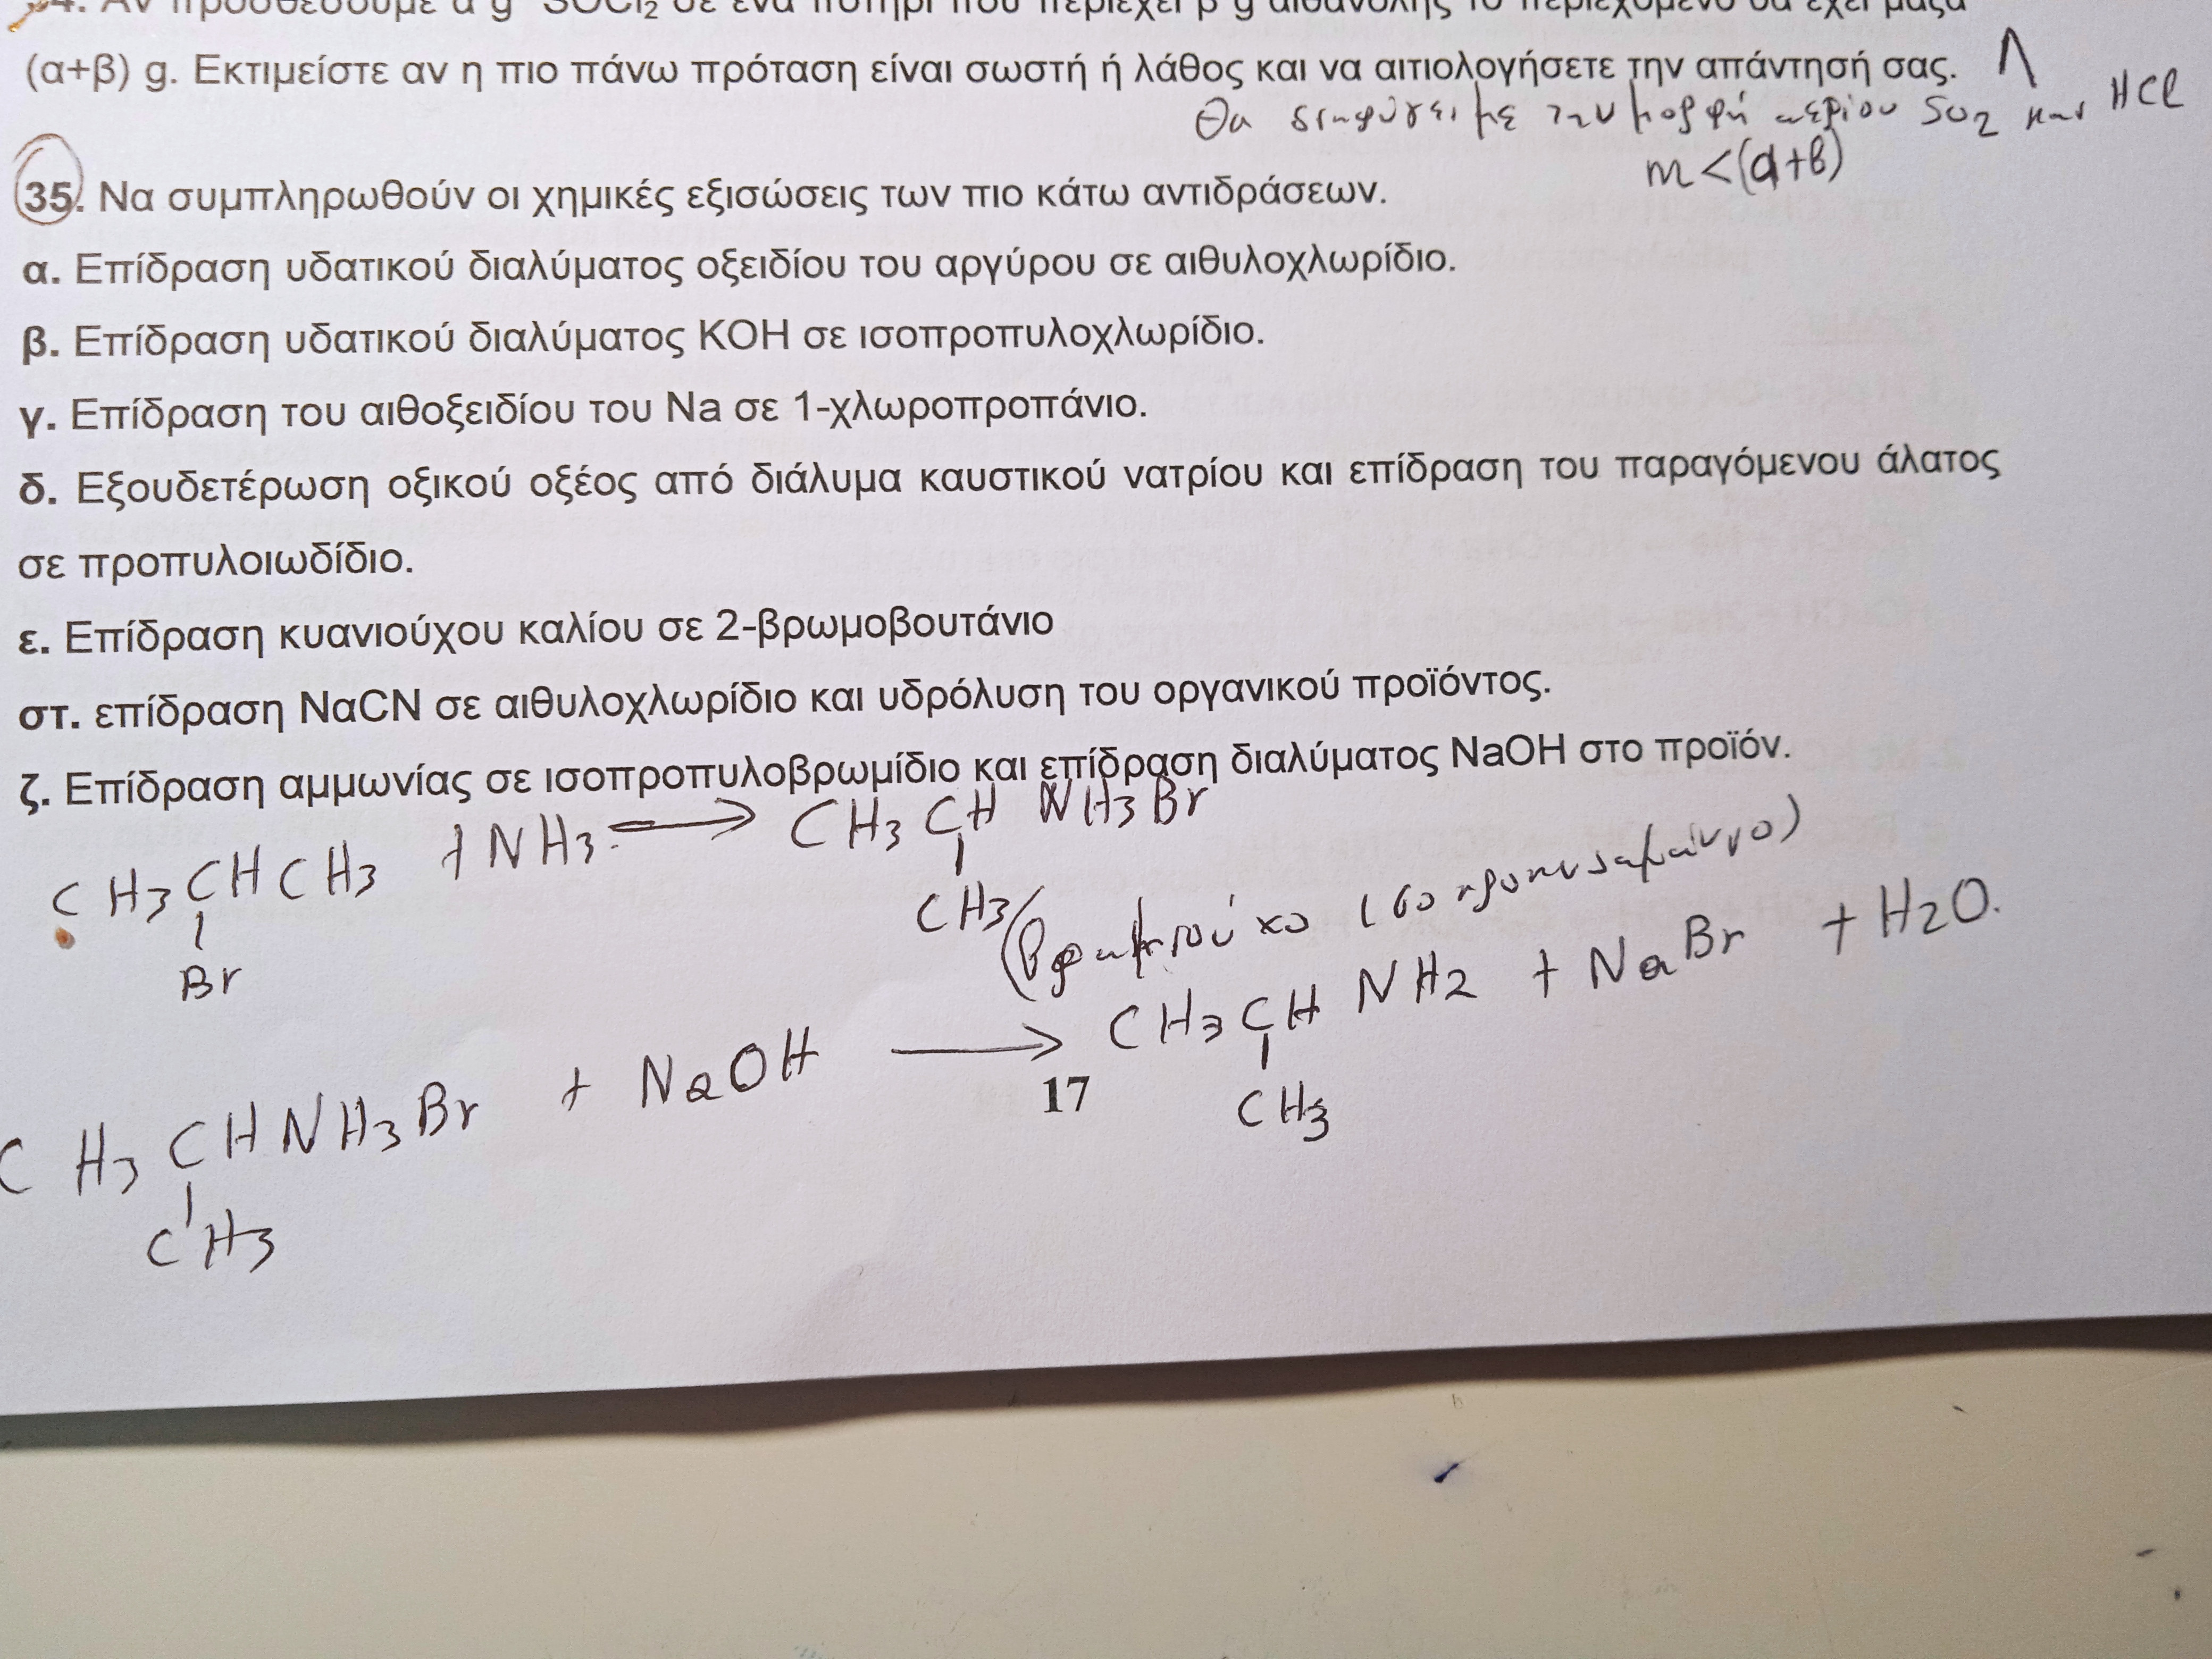 34. Αν προσθέσουμε α g SOCl₂ σε ένα ποτήρι που περιέχει β g αιθανόλης το περιεχόμενο θα έχει μάζα
(α+β) g. Εκτιμείστε αν η πιο πάνω πρόταση είναι σωστή ή λάθος και να αιτιολογήσετε την απάντησή σας. Λ
Θα διαφύγει με την μορφή αερίου SO₂ και HCl
m <(α+β)
35. Να συμπληρωθούν οι χημικές εξισώσεις των πιο κάτω αντιδράσεων.
α. Επίδραση υδατικού διαλύματος οξειδίου του αργύρου σε αιθυλοχλωρίδιο.
β. Επίδραση υδατικού διαλύματος ΚΟΗ σε ισοπροπυλοχλωρίδιο.
γ. Επίδραση του αιθοξειδίου του Na σε 1-χλωροπροπάνιο.
δ. Εξουδετέρωση οξικού οξέος από διάλυμα καυστικού νατρίου και επίδραση του παραγόμενου άλατος
σε προπυλοιωδίδιο.
ε. Επίδραση κυανιούχου καλίου σε 2-βρωμοβουτάνιο
στ. επίδραση NαCN σε αιθυλοχλωρίδιο και υδρόλυση του οργανικού προϊόντος.
ζ. Επίδραση αμμωνίας σε ισοπροπυλοβρωμίδιο και επίδραση διαλύματος NaOH στο προϊόν.
CH₃CHCH₃ + NH₃ → CH₃CHNH₃Br
Br
CH₃
(βρωμιούχο ισοπροπυλαμμώνιο)
CH₃CHNH₃Br + NaOH → CH₃CHNH₂ + NaBr + H₂O.
CH₃
CH₃
17